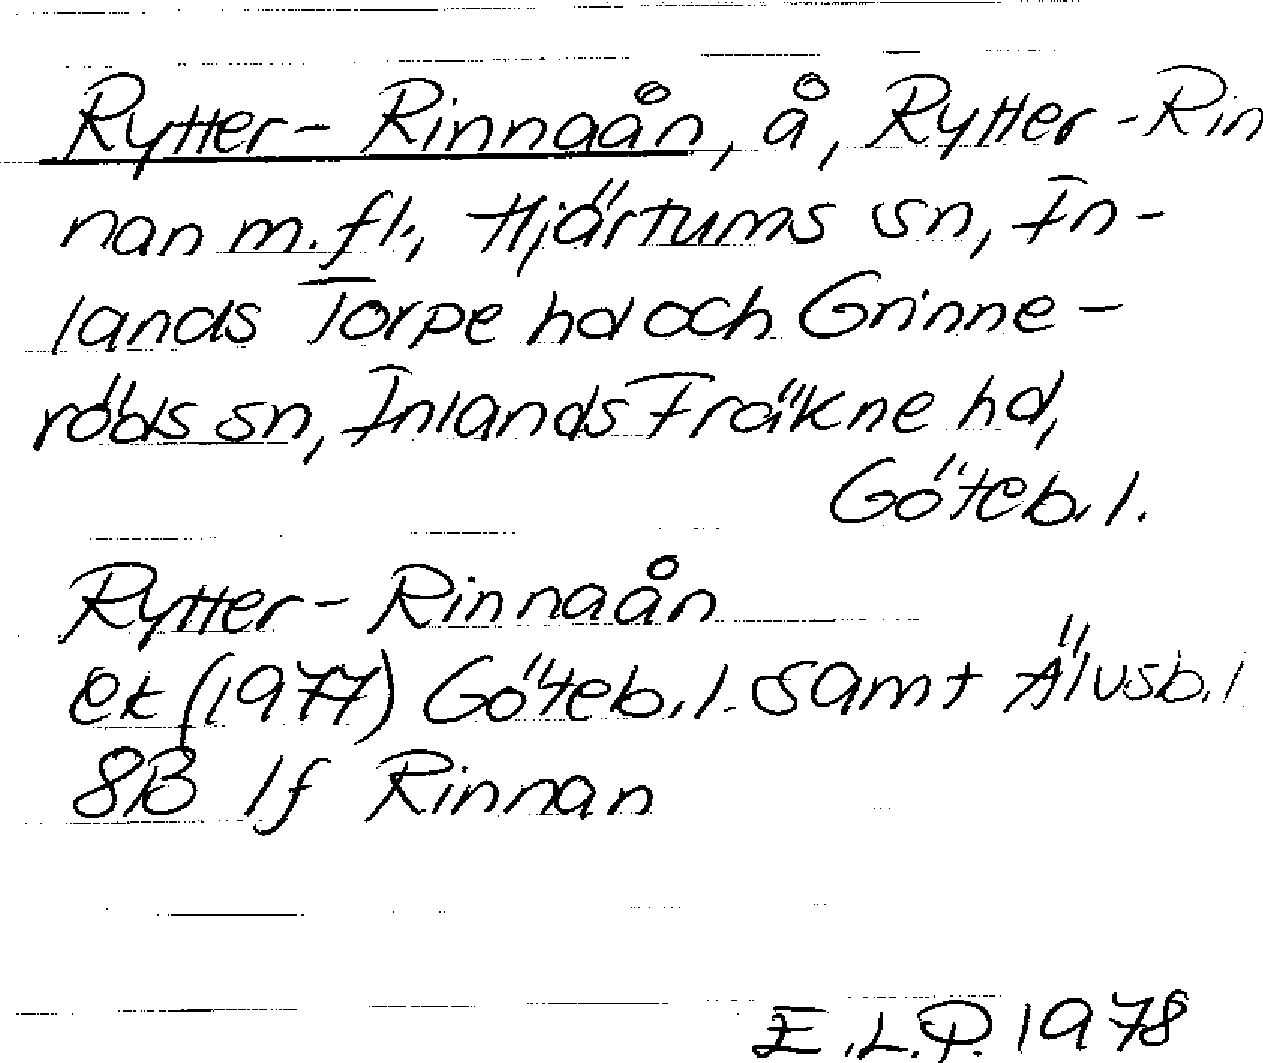 Rytter-Rinnaån, å, Rytter-Rin
nan m.fl., Hjärtums sn, In-
lands Torpe hd och Grinne-
röds sn, Inlands Fräkne hd,
Göteb.l.
Rytter-Rinnaån
ek (1977) Göteb.l. samt Älvsb.l
8B 1f Rinnan
E.L.P. 1978